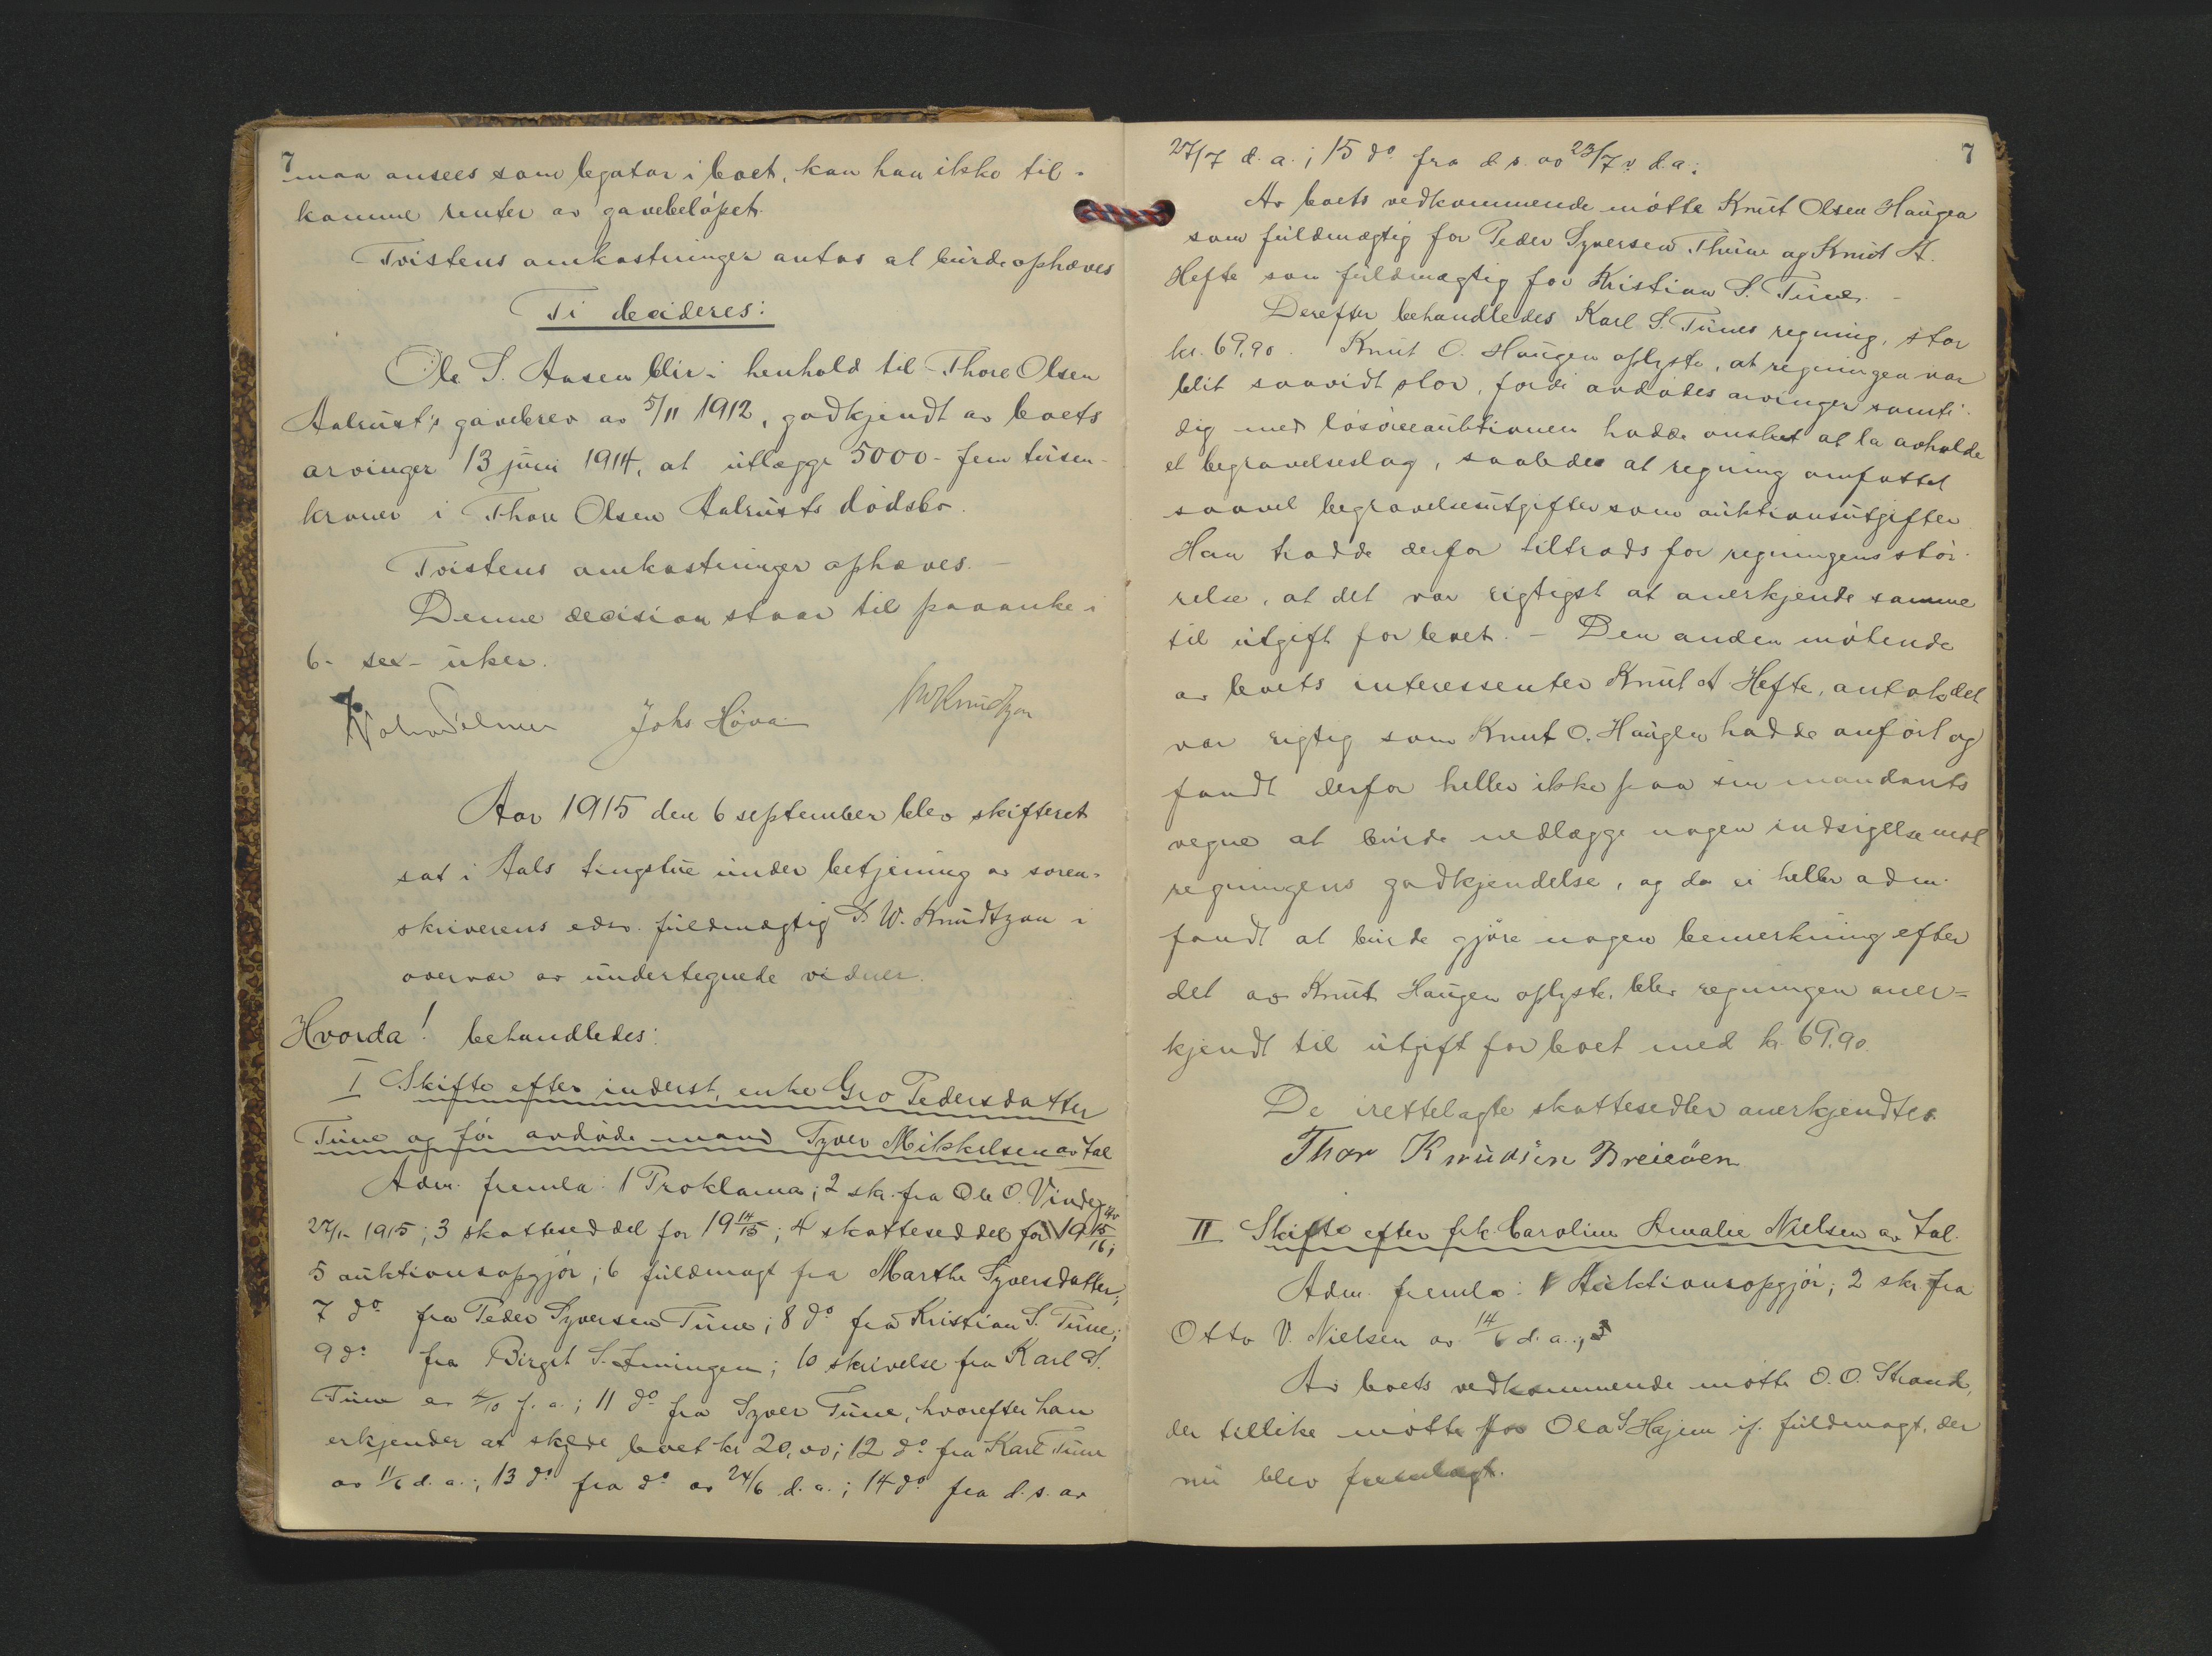 7
maa ansees som legatar i boet, kan han ikke til-
komme renter av gavebeløpet.
Tvistens omkostninger antas at burde ophæves
Ti decideres:
Ole S. Aasen blir i henhold til Thore Olsen
Aalrust's gavebrev av 5/11 1912, godkjendt av boets
arvinger 13 juni 1914, at utlægge 5000 - fem tusen -
kroner i Thore Olsen Aalrusts dødsbo.
Tvistens omkostninger ophæves. -
Denne decision staar til paaanke i
6 - sex - uker.
Johs Høva
Aar 1915 den 6 september blev skifteret
sat i Aals tingstue under betjening av soren-
skriverens edsv. fuldmægtig S. W. Knudtzon i
overvær av undertegnede vidner.
Hvorda! behandledes:
I Skifte efter inderst, enke Gro Pedersdatter
Tune og før avdøde mand Syver Mikkelsen av Aal
Adm. fremla: 1 Proklama; 2 skr. fra Ole O. Vindeg av
27/1 1915; 3 skatteseddel for 19 14/15; 4 skatteseddel for 19 15/16;
5 auktionsopgjør; 6 fuldmagt fra Marthe Syversdatter;
7 do fra Peder Syversen Tune; 8 do fra Kristian S. Tune;
9 do fra Birgit S. ; 10 skrivelse fra Karl S.
Tune av /10 f. a.; 11 do fra Syver Tune, hvorefter han
erkjender at skylde boet kr 20,00; 12 do fra Karl Tune
av 11/6 d. a.; 13 do fra do av 24/6 d. a.; 14 do fra d. s. av
7
27/7 d. a.; 15 do fra d. s. av 23/7 d. a.:
Av boets vedkommende møtte Knut Olsen Haugen
som fuldmægtig for Peder Syversen Thune og Knut A.
Hefte som fuldmægtig for Kristian S. Tune. -
Derefter behandledes Karl S. Tunes regning, stor
kr. 69,90. Knut O. Haugen oplyste, at regningen var
blit saavidt stor, fordi avdødes arvinger samti-
dig med løsøreauktionen hadde ønsket at la avholde
et begravelseslag, saaledes at regning omfattet
saavel begravelsesutgifter som auktionsutgifter
Han trodde derfor tiltrods for regningens stør-
relse, at det var rigtigst at anerkjende samme
til utgift for boet. - Den anden møtende
av boets interessenter Knut A Hefte, antok det
var rigtig som Knut O. Haugen hadde anført og
fandt derfor heller ikke paa sin mandants
vegne at burde nedlægge nogen indsigelse mot
regningens godkjendelse, og da ei heller adm.
fandt at burde gjøre nogen bemerkning efter
det av Knut Haugen oplyste, blev regningen aner=
kjendt til utgift for boet med kr. 69,90.
De irettelagte skattesedler anerkjendtes.
Thor Knudsen Breieøen
II Skifte efter frk. Caroline Amalie Nielsen av Aal.
Adm. fremla: 1 Auktionsopgjør; 2 skr. fra
Otto V. Nielsen av 14/6 d. a.; 3
Av boets vedkommende møtte O. O. Strand,
der tillike møtte for Ola S Hajem if. fuldmagt, der
nu blev fremlagt.